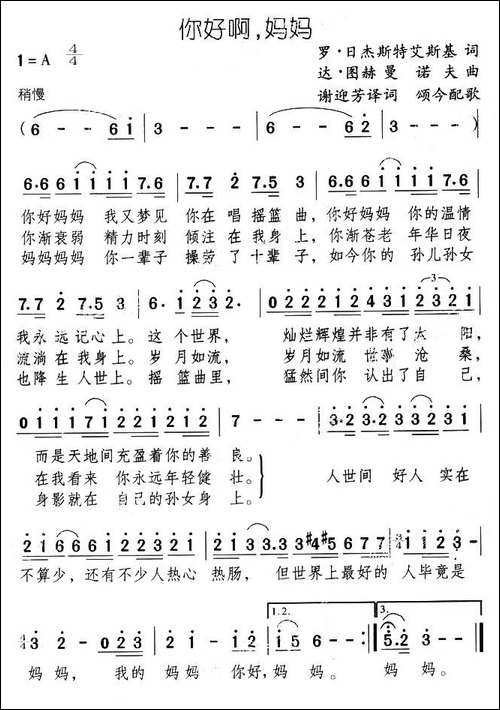 你好啊,妈妈
1=A 4/4
罗·日杰斯特艾斯基 词
达·图赫曼 诺夫曲
稍慢
谢迎芳译词 颂今配歌
(6 - - 61 | 3 - - - | 6 - - 62 | 3 - - -)
6·66111 1 17·6 | 7·7 2 7·53 | 6·66111 1 17·6
你好妈妈 我又梦见 你在 唱摇篮曲,你好妈妈 你的温情
你渐衰弱 精力时刻 倾注 在我身上,你渐苍老 年华日夜
妈妈妈妈 你一辈子 操劳 了十辈子,如今你的 孙儿孙女
7·7 2 7·53 | 6· 123 2 | 022124312321
我永远记心上。这个世界, 灿烂辉煌并非有了太 阳,
流淌在我身上。岁月如流, 岁月如流 世事 沧 桑,
也降生人世上。摇篮曲里, 猛然间你 认出了自 己,
0111712223212 | 7 - - - | 3·23·2332331
而是天地间充盈着你的善 良。
在我看来 你永远年轻健 壮。
身影就在 自己的孙女身 上。
人世间 好人 实在
216661223221 | 21 33·33#4#5677 | 2/4 1 123 -
不算少,还有不少人热心 热肠, 但世界上最好的 人毕竟是
4/4 3 2 - 023 | 21 - 12 | 1.2. 15 6 - - :| 3. 5·2 3 - -
妈妈, 我的 妈妈 你好,妈 妈。 妈 妈。